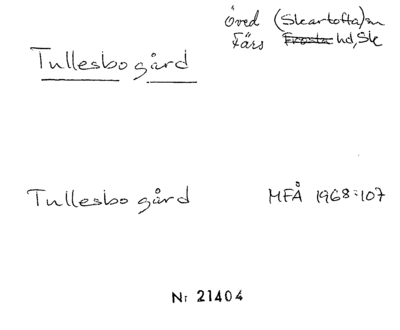 Öved (Skartofta)sn
Tullesbo gård
Färs Frosta hd, Sk
Tullesbo gård
MFÅ 1968:107
Nr 21404